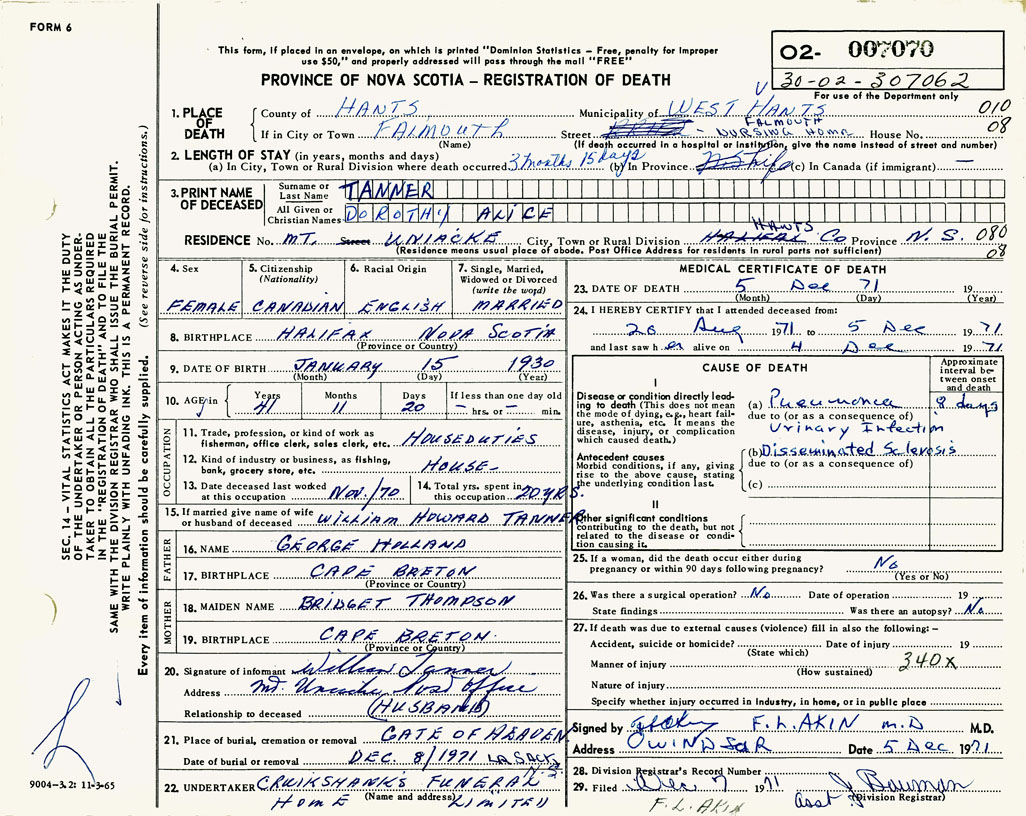 FORM 6
This form, if placed in an envelope, on which is printed "Dominion Statistics – Free, penalty for improper
use $50," and properly addressed will pass through the mail "FREE"
PROVINCE OF NOVA SCOTIA – REGISTRATION OF DEATH
02- 007070
30-02-307062
For use of the Department only
010
08
1. PLACE OF DEATH
County of HANTS Municipality of WEST HANTS
If in City or Town FALMOUTH Street FALMOUTH - NURSING HOME House No.
(Name) (If death occurred in a hospital or institution, give the name instead of street and number)
2. LENGTH OF STAY (in years, months and days)
(a) In City, Town or Rural Division where death occurred 3 months 15 days (b) In Province (c) In Canada (if immigrant) —
3. PRINT NAME OF DECEASED
Surname or Last Name TANNER
All Given or Christian Names DOROTHY ALICE
RESIDENCE No. MT. Street UNIACKE City, Town or Rural Division HALIFAX HANTS Co Province N. S. 080
(Residence means usual place of abode. Post Office Address for residents in rural parts not sufficient) 08
4. Sex FEMALE
5. Citizenship (Nationality) CANADIAN
6. Racial Origin ENGLISH
7. Single, Married, Widowed or Divorced (write the word) MARRIED
8. BIRTHPLACE HALIFAX NOVA SCOTIA
(Province or Country)
9. DATE OF BIRTH JANUARY 15 1930
(Month) (Day) (Year)
10. AGE in Years 41 Months 11 Days 20 If less than one day – hrs. or – min.
OCCUPATION
11. Trade, profession, or kind of work as fisherman, office clerk, sales clerk, etc. HOUSEDUTIES
12. Kind of industry or business, as fishing, bank, grocery store, etc. HOUSE-
13. Date deceased last worked at this occupation NOV./70
14. Total yrs. spent in this occupation 20 YRS.
15. If married give name of wife or husband of deceased WILLIAM HOWARD TANNER
FATHER
16. NAME GEORGE HOLLAND
17. BIRTHPLACE CAPE BRETON
(Province or Country)
MOTHER
18. MAIDEN NAME BRIDGET THOMPSON
19. BIRTHPLACE CAPE BRETON.
(Province or Country)
20. Signature of informant William Tanner
Address Mt. Uniacke Post Office
Relationship to deceased (HUSBAND)
21. Place of burial, cremation or removal GATE OF HEAVEN
Date of burial or removal DEC. 8/1971 LR. SACK.
N.S.
22. UNDERTAKER CRUIKSHANK'S FUNERAL
(Name and address)
HOME LIMITED
MEDICAL CERTIFICATE OF DEATH
23. DATE OF DEATH 5 Dec 71 19
(Month) (Day) (Year)
24. I HEREBY CERTIFY that I attended deceased from:
20 Aug 1971 to 5 Dec 1971
and last saw her alive on 4 Dec 1971
CAUSE OF DEATH
Approximate interval between onset and death
I
Disease or condition directly leading to death (This does not mean the mode of dying, e.g., heart failure, asthenia, etc. It means the disease, injury, or complication which caused death.)
(a) Pneumonia 8 days
due to (or as a consequence of)
Urinary Infection
Antecedent causes
Morbid conditions, if any, giving rise to the above cause, stating the underlying condition last.
(b) Disseminated Sclerosis
due to (or as a consequence of)
(c)
II
Other significant conditions
contributing to the death, but not related to the disease or condition causing it.
25. If a woman, did the death occur either during pregnancy or within 90 days following pregnancy? No
(Yes or No)
26. Was there a surgical operation? No. Date of operation 19
State findings Was there an autopsy? No.
27. If death was due to external causes (violence) fill in also the following: –
Accident, suicide or homicide? Date of injury 19
(State which)
Manner of injury 340x
(How sustained)
Nature of injury
Specify whether injury occurred in industry, in home, or in public place
Signed by F. L. AKIN M.D M.D.
Address WINDSOR Date 5 Dec 1971
28. Division Registrar's Record Number
29. Filed Dec 7 1971 J Bauman
Asst. (Division Registrar)
F. L. AKIN
9004-3.2: 11-3-65
SEC. 14 – VITAL STATISTICS ACT MAKES IT THE DUTY
OF THE UNDERTAKER OR PERSON ACTING AS UNDER-
TAKER TO OBTAIN ALL THE PARTICULARS REQUIRED
IN THE "REGISTRATION OF DEATH" AND TO FILE THE
SAME WITH THE DIVISION REGISTRAR WHO SHALL ISSUE THE BURIAL PERMIT.
WRITE PLAINLY WITH UNFADING INK. THIS IS A PERMANENT RECORD.
Every item of information should be carefully supplied. (See reverse side for instructions.)